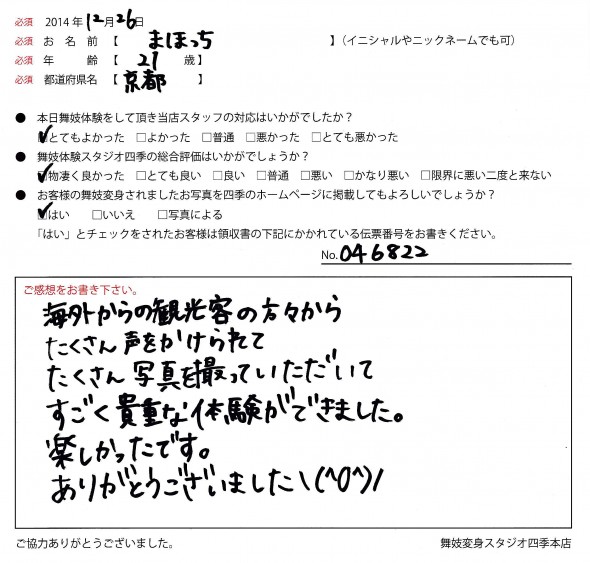 必須 2014年12月26日
必須 お名前【 まほっち 】(イニシャルやニックネームでも可)
必須 年齢【 21 歳】
必須 都道府県名【 京都 】
● 本日舞妓体験をして頂き当店スタッフの対応はいかがでしたか?
☑とてもよかった □よかった □普通 □悪かった □とても悪かった
● 舞妓体験スタジオ四季の総合評価はいかがでしょうか?
☑物凄く良かった □とても良い □良い □普通 □悪い □かなり悪い □限界に悪い二度と来ない
● お客様の舞妓変身されましたお写真を四季のホームページに掲載してもよろしいでしょうか?
☑はい □いいえ □写真による
「はい」とチェックをされたお客様は領収書の下記にかかれている伝票番号をお書きください。
No. 046822
ご感想をお書き下さい。
海外からの観光客の方々から
たくさん声をかけられて
たくさん写真を撮っていただいて
すごく貴重な体験ができました。
楽しかったです。
ありがとうございました\(^0^)/
ご協力ありがとうございました。 舞妓変身スタジオ四季本店